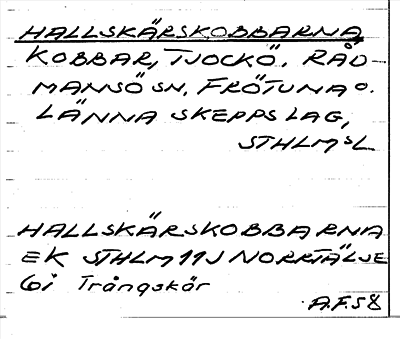 HALLSKÄRSKOBBARNA,
KOBBAR, TJOCKÖ. RÅD-
MANSÖ SN, FRÖTUNA O.
LÄNNA SKEPPSLAG,
STHLMS L
HALLSKÄRSKOBBARNA
EK STHLM 11J NORRTÄLJE
6i Trångskär
A.F.58